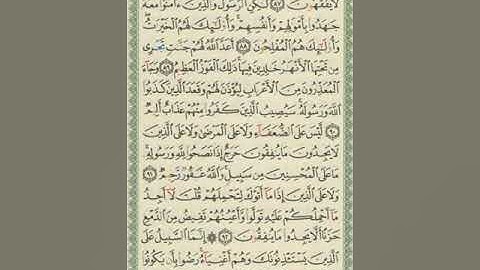 لَا يَفْقَهُونَ ٨٧ لَٰكِنِ الرَّسُولُ وَالَّذِينَ ءَامَنُوا مَعَهُ
جَٰهَدُوا بِأَمْوَٰلِهِمْ وَأَنفُسِهِمْ وَأُولَٰئِكَ لَهُمُ الْخَيْرَٰتُ
وَأُولَٰئِكَ هُمُ الْمُفْلِحُونَ ٨٨ أَعَدَّ اللَّهُ لَهُمْ جَنَّٰتٍ تَجْرِى
مِن تَحْتِهَا الْأَنْهَٰرُ خَٰلِدِينَ فِيهَا ذَٰلِكَ الْفَوْزُ الْعَظِيمُ ٨٩ وَجَاءَ
الْمُعَذِّرُونَ مِنَ الْأَعْرَابِ لِيُؤْذَنَ لَهُمْ وَقَعَدَ الَّذِينَ كَذَبُوا
اللَّهَ وَرَسُولَهُ سَيُصِيبُ الَّذِينَ كَفَرُوا مِنْهُمْ عَذَابٌ أَلِيمٌ
٩٠ لَّيْسَ عَلَى الضُّعَفَاءِ وَلَا عَلَى الْمَرْضَىٰ وَلَا عَلَى الَّذِينَ
لَا يَجِدُونَ مَا يُنفِقُونَ حَرَجٌ إِذَا نَصَحُوا لِلَّهِ وَرَسُولِهِ
مَا عَلَى الْمُحْسِنِينَ مِن سَبِيلٍ وَاللَّهُ غَفُورٌ رَّحِيمٌ ٩١
وَلَا عَلَى الَّذِينَ إِذَا مَا أَتَوْكَ لِتَحْمِلَهُمْ قُلْتَ لَا أَجِدُ
مَا أَحْمِلُكُمْ عَلَيْهِ تَوَلَّوا وَّأَعْيُنُهُمْ تَفِيضُ مِنَ الدَّمْعِ
حَزَنًا أَلَّا يَجِدُوا مَا يُنفِقُونَ ٩٢ إِنَّمَا السَّبِيلُ عَلَى
الَّذِينَ يَسْتَـْٔذِنُونَكَ وَهُمْ أَغْنِيَاءُ رَضُوا بِأَن يَكُونُوا